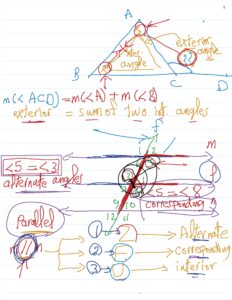 A
inter. angle
exterior angle
B C D
m(<ACD) = m(<A) + m(<B)
exterior = sum of two int. angles
m
<5 = <3
alternate angles
<5 = <8
corresponding
n
9 10
12 11
Parallel
m // n
1 Alternate
2 corresponding
3 interior